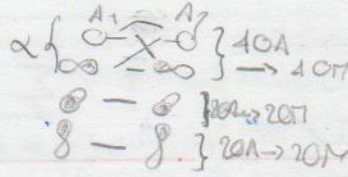 α { A₁ A₂ } 4OA
→ 4OM
} 2OA → 2OM
} 2OA → 2OM